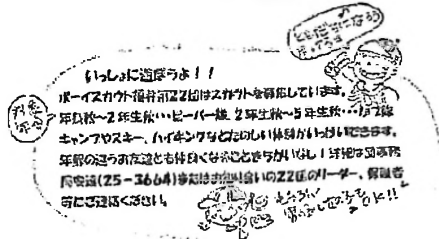 ともだちになろう
いっしょに遊ぼうよ!!
ボーイスカウト福井第22団はスカウトを募集しています。
年長秋〜2年生秋…ビーバー隊、2年生秋〜5年生秋…カブ隊
キャンプやスキー、ハイキングなどたのしい体験がいっぱいできます。
年齢の違うお友達とも仲良くなれることまちがいなし!
(25-3664)またはお知り合いの22団のリーダー、保護者
等にご連絡ください。
OK!!